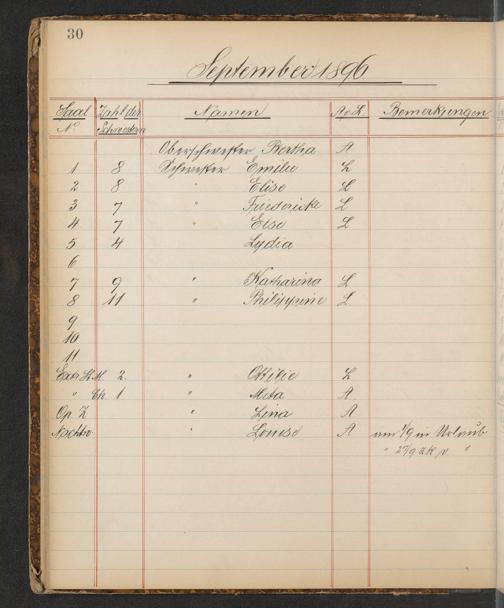 30
September 1896
Saal No Zahl der Schwestern Namen A o L Bemerkungen
Oberschwester Bertha A
1 8 Schwester Emilie L
2 8 " Elise L
3 7 " Friedericke L
4 7 " Else L
5 4 Lydia
6
7 9 " Katharina L
8 11 " Philippine L
9
10
11
M. 2 " Ottilie L
" Ch. 1 " Meta A
Op. Z " Lina A
" Louise A am 1/9 in Urlaub
" 27/9 "